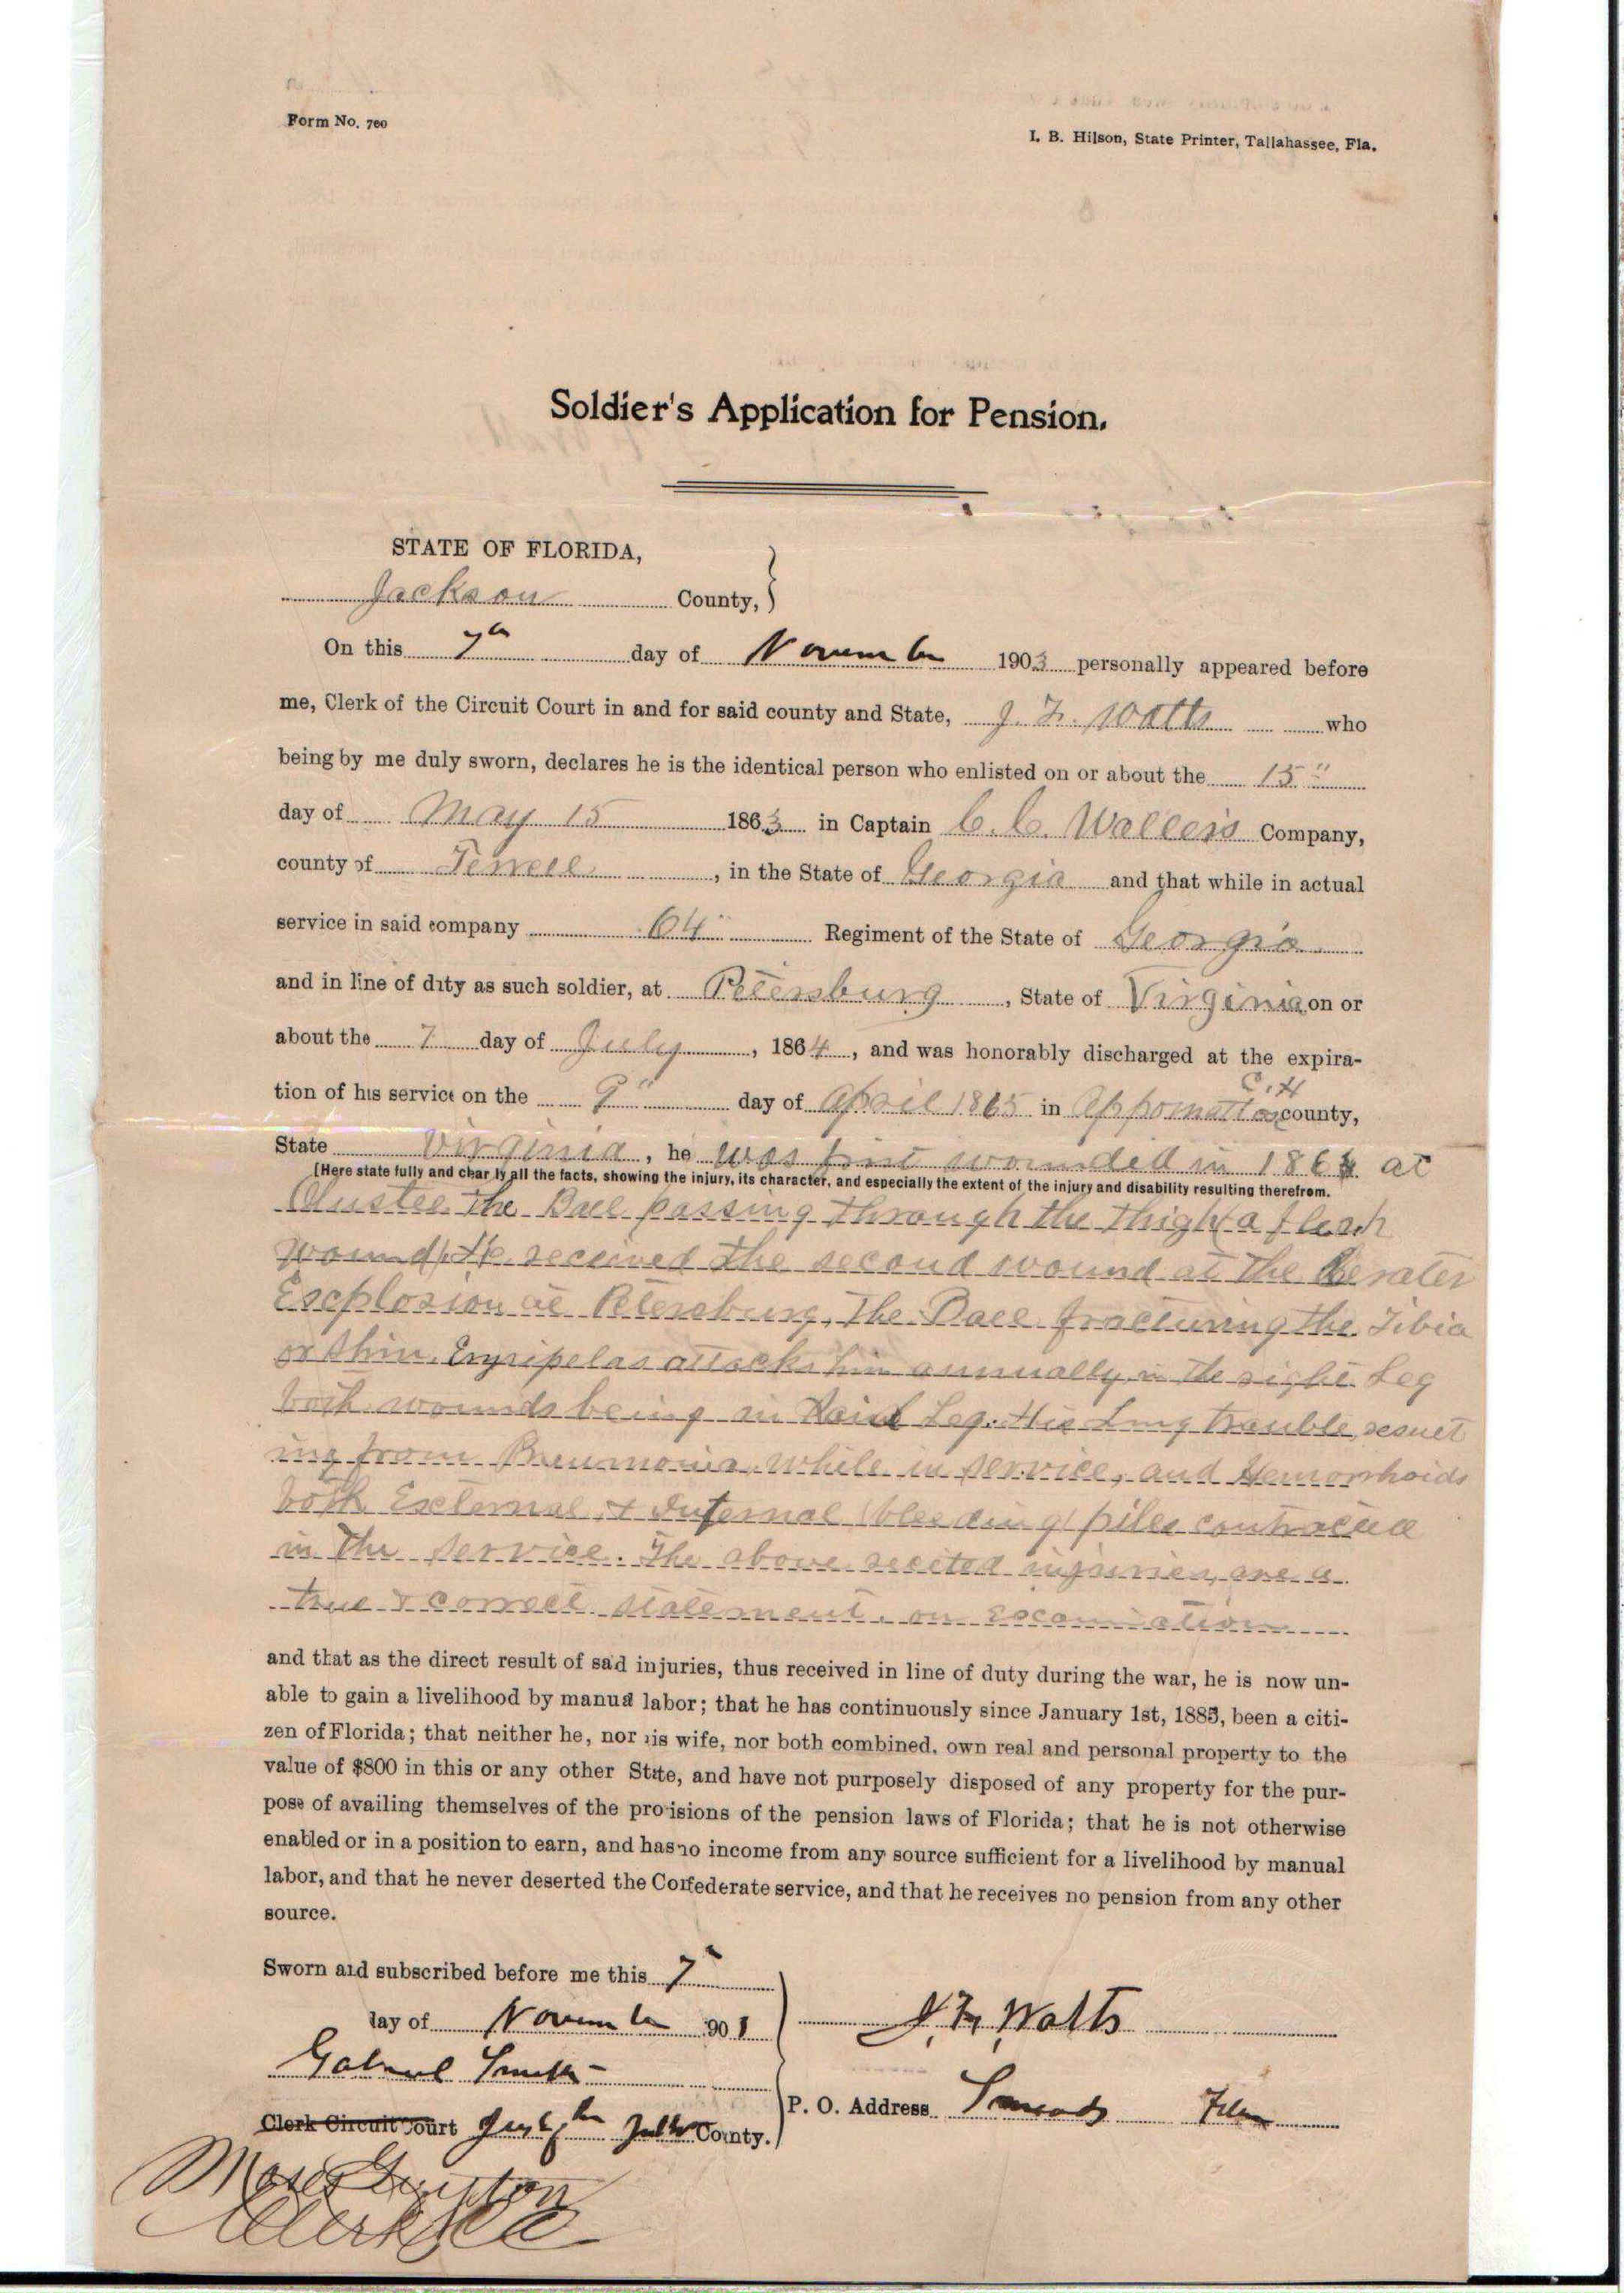 Form No. 700
I. B. Hilson, State Printer, Tallahassee, Fla.
Soldier's Application for Pension.
STATE OF FLORIDA,
Jackson County,
On this 7th day of November 1903 personally appeared before
me, Clerk of the Circuit Court in and for said county and State, J. F. Watts who
being by me duly sworn, declares he is the identical person who enlisted on or about the 15"
day of May 15 1863 in Captain C. C. Wallers Company,
county of Terrell, in the State of Georgia and that while in actual
service in said company 64" Regiment of the State of Georgia
and in line of duty as such soldier, at Petersburg, State of Virginia on or
about the 7 day of July, 1864, and was honorably discharged at the expira-
tion of his service on the 9" day of April 1865 in Appomattox C.H county,
State Virginia, he was first wounded in 1864 at
[Here state fully and clearly all the facts, showing the injury, its character, and especially the extent of the injury and disability resulting therefrom.
Olustee. The Ball passing through the thigh (a flesh
wound) He received the second wound at the Cerater
Explosion at Petersburg, The Ball fracturing the Tibia
or shin. Erysipelas attacks him annually in the right Leg
both wounds being in said Leg. His Lung trouble, result
ing from Pneumonia, while in service, and Hemorrhoids
both External & Internal (bleeding) piles contracted
in the service. The above recited injuries, are a
true & correct statement. on examination
and that as the direct result of said injuries, thus received in line of duty during the war, he is now un-
able to gain a livelihood by manual labor; that he has continuously since January 1st, 1885, been a citi-
zen of Florida; that neither he, nor his wife, nor both combined, own real and personal property to the
value of $800 in this or any other State, and have not purposely disposed of any property for the pur-
pose of availing themselves of the provisions of the pension laws of Florida; that he is not otherwise
enabled or in a position to earn, and has no income from any source sufficient for a livelihood by manual
labor, and that he never deserted the Confederate service, and that he receives no pension from any other
source.
Sworn and subscribed before me this 7"
day of November 903
J. F. Watts
Gabriel Smith
P. O. Address Sneads Fla
Clerk Circuit Court County.
Moses Guyton
Clerk